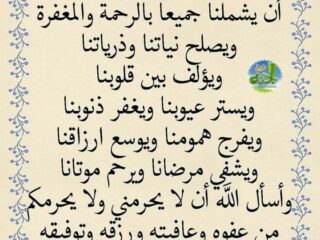 أن يشملنا جميعا بالرحمة والمغفرة
ويصلح نياتنا وذرياتنا
ويؤلف بين قلوبنا
ويستر عيوبنا ويغفر ذنوبنا
ويفرج همومنا ويوسع ارزاقنا
ويشفي مرضانا ويرحم موتانا
وأسأل الله أن لا يحرمني ولا يحرمكم
من عفوه وعافيته ورزقه وتوفيقه